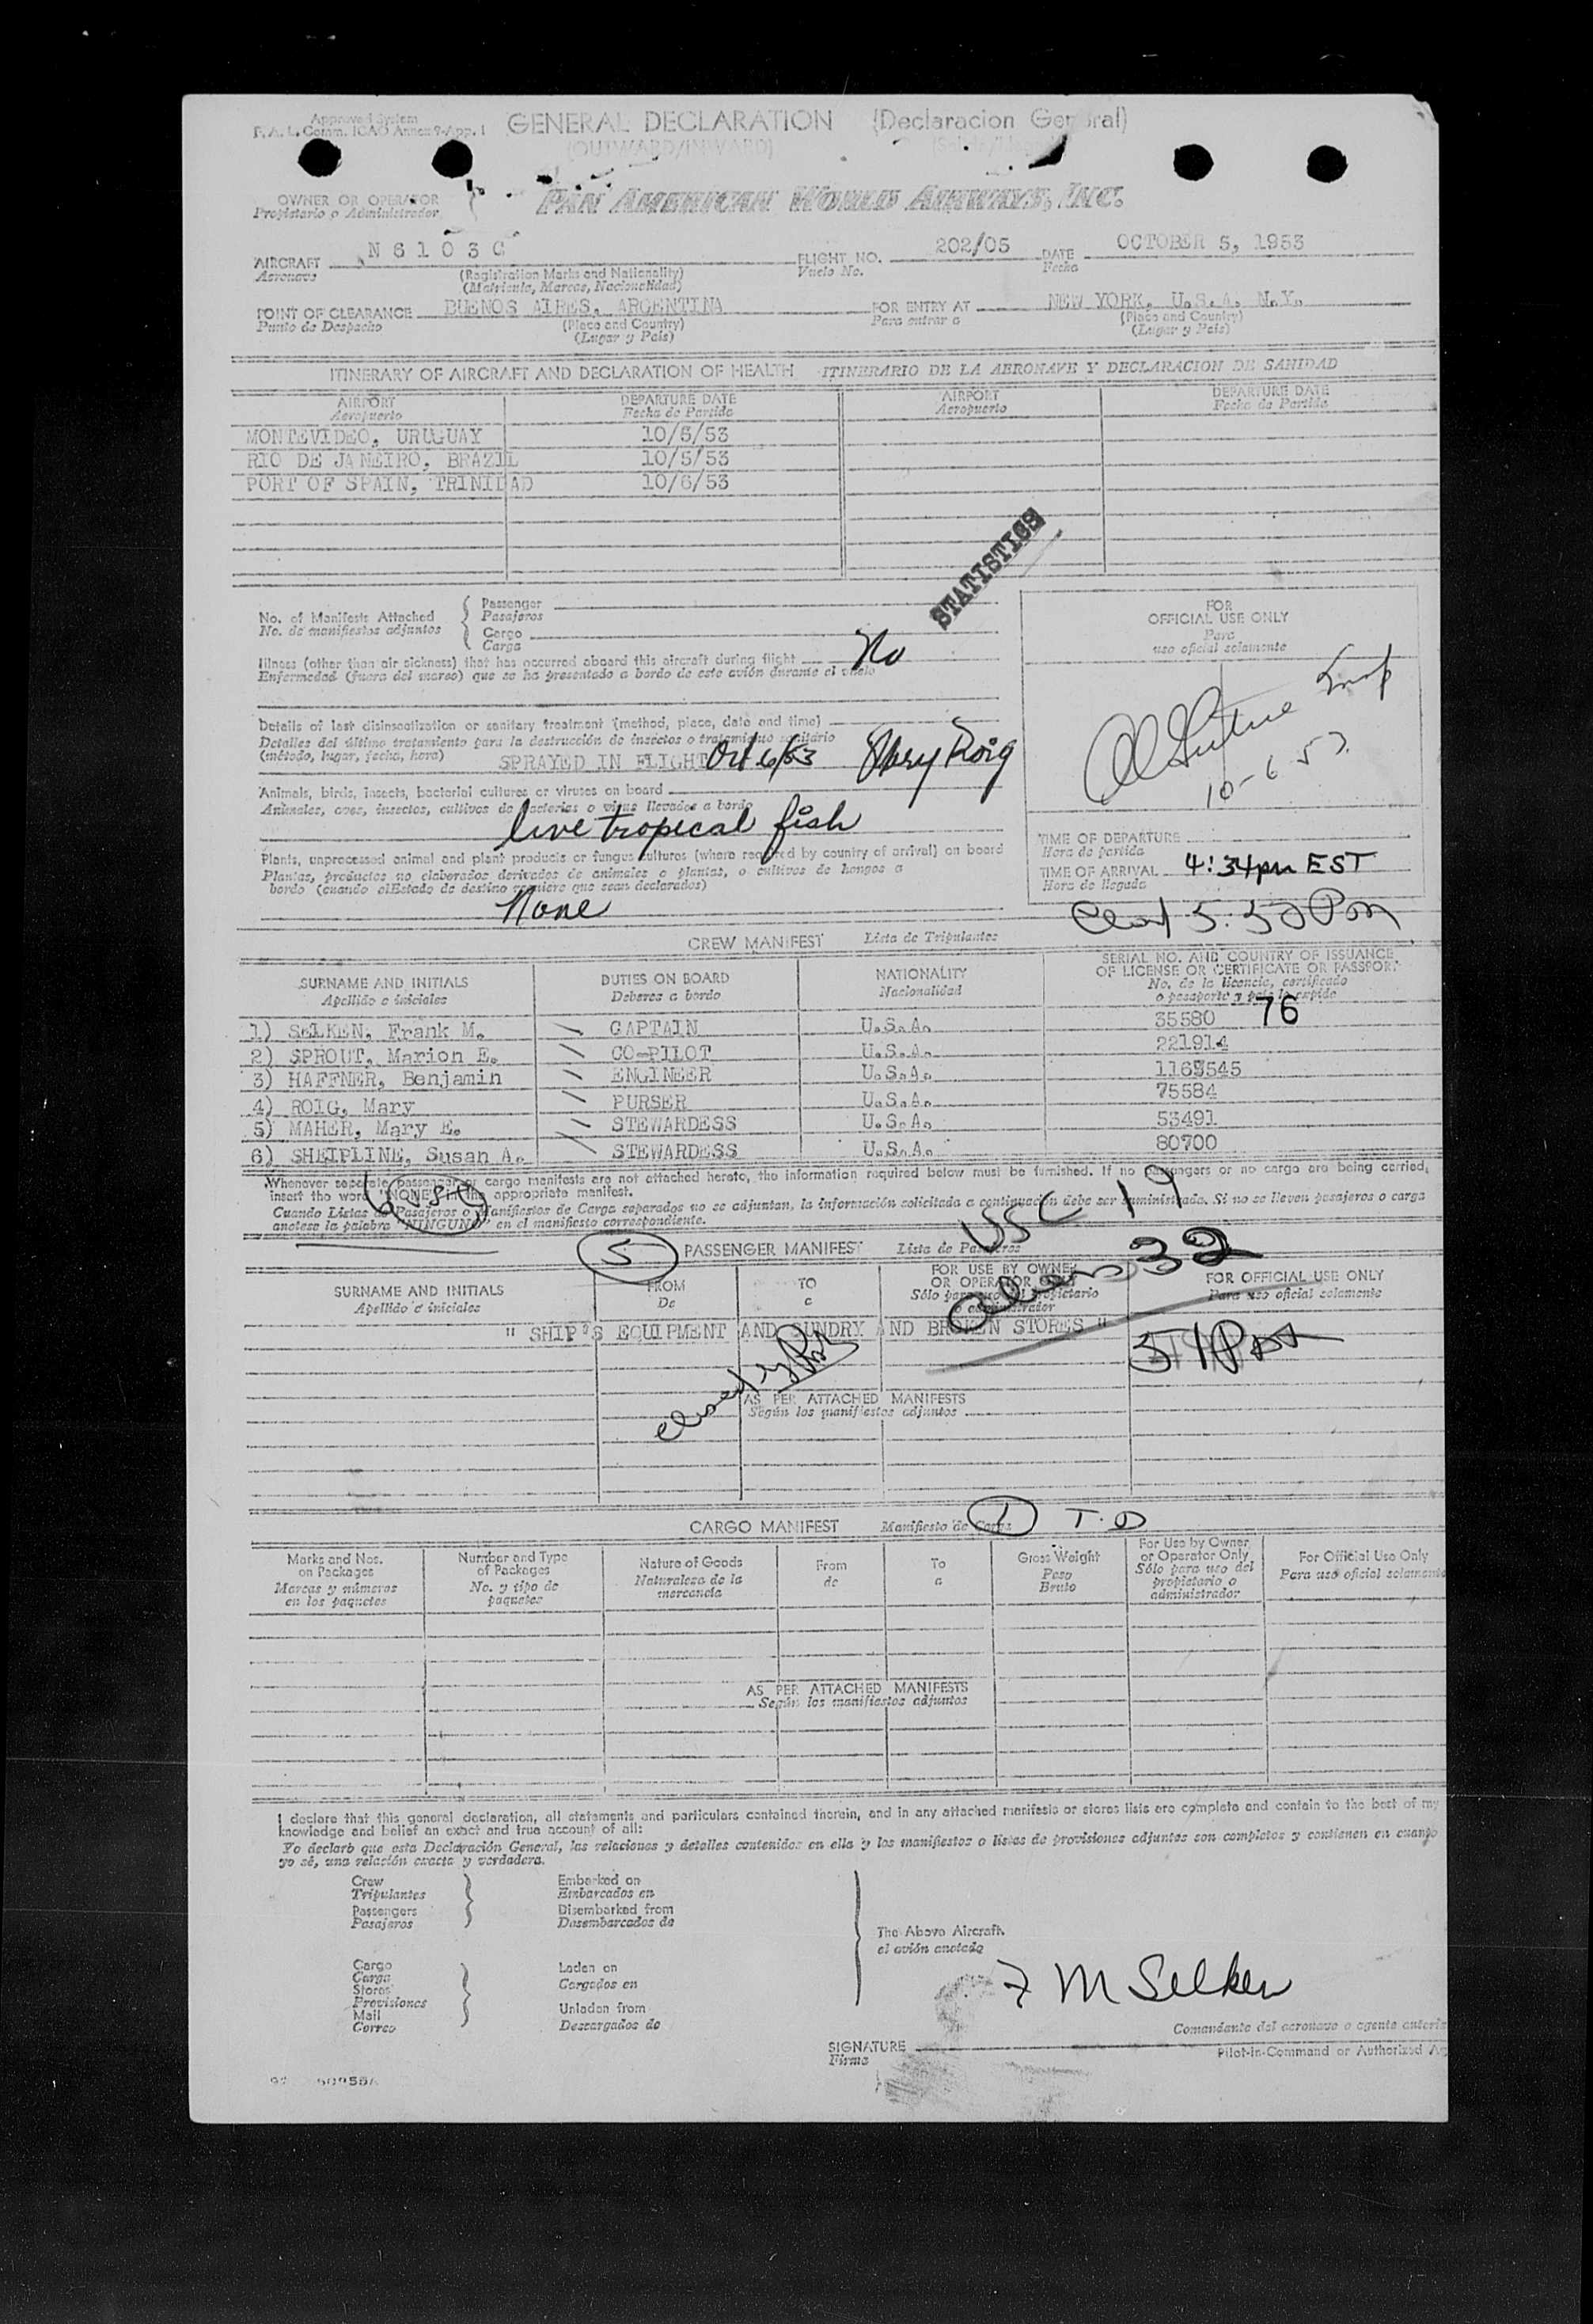 Approved System
F. A. L. Comm. ICAO Annex 9-App. 1
GENERAL DECLARATION (Declaracion General)
(OUTWARD/INWARD)
OWNER OR OPERATOR
Propietario o Administrador
PAN AMERICAN WORLD AIRWAYS, INC.
AIRCRAFT N 6 1 0 3 C FLIGHT NO. 202/05 DATE OCTOBER 5, 1953
Aeronave (Registration Marks and Nationality) Vuelo No. Fecha
(Matricula, Marcas, Nacionalidad)
POINT OF CLEARANCE BUENOS AIRES, ARGENTINA FOR ENTRY AT NEW YORK, U.S.A. N.Y.
Punto de Despacho (Place and Country) Para entrar a (Place and Country)
(Lugar y País) (Lugar y País)
ITINERARY OF AIRCRAFT AND DECLARATION OF HEALTH ITINERARIO DE LA AERONAVE Y DECLARACION DE SANIDAD
AIRPORT DEPARTURE DATE AIRPORT DEPARTURE DATE
Aeropuerto Fecha de Partida Aeropuerto Fecha de Partida
MONTEVIDEO, URUGUAY 10/5/53
RIO DE JANEIRO, BRAZIL 10/5/53
PORT OF SPAIN, TRINIDAD 10/6/53
STATISTICS
No. of Manifests Attached Passenger
No. de manifiestos adjuntos Pasajeros
Cargo
Carga
Illness (other than air sickness) that has occurred aboard this aircraft during flight No
Enfermedad (fuera del mareo) que se ha presentado a bordo de este avión durante el vuelo
Details of last disinsectization or sanitary treatment (method, place, date and time)
Detalles del último tratamiento para la destrucción de insectos o tratamiento sanitario
(método, lugar, fecha, hora) SPRAYED IN FLIGHT Oct 6/53 Mary Roig
Animals, birds, insects, bacterial cultures or viruses on board
Animales, aves, insectos, cultivos de bacterias o virus llevados a bordo
live tropical fish
Plants, unprocessed animal and plant products or fungus cultures (where required by country of arrival) on board
Plantas, productos no elaborados derivados de animales o plantas, o cultivos de hongos a
bordo (cuando el Estado de destino requiere que sean declarados)
None
FOR
OFFICIAL USE ONLY
Para
uso oficial solamente
10-6-53
TIME OF DEPARTURE
Hora de partida
TIME OF ARRIVAL 4:34pm EST
Hora de llegada
5:50 Pm
CREW MANIFEST Lista de Tripulantes
SURNAME AND INITIALS DUTIES ON BOARD NATIONALITY SERIAL NO. AND COUNTRY OF ISSUANCE
OF LICENSE OR CERTIFICATE OR PASSPORT
Apellido e iniciales Deberes a bordo Nacionalidad No. de la licencia, certificado
o pasaporte y país lo expide
76
1) SELKEN, Frank M. CAPTAIN U.S.A. 35580
2) SPROUT, Marion E. CO-PILOT U.S.A. 221914
3) HAFFNER, Benjamin ENGINEER U.S.A. 1165545
4) ROIG, Mary PURSER U.S.A. 75584
5) MAHER, Mary E. STEWARDESS U.S.A. 53491
6) SHEIPLINE, Susan A. STEWARDESS U.S.A. 80700
Whenever separate passenger or cargo manifests are not attached hereto, the information required below must be furnished. If no passengers or no cargo are being carried,
insert the word "NONE" in the appropriate manifest.
Cuando Listas de Pasajeros o Manifiestos de Carga separados no se adjuntan, la información solicitada a continuación debe ser suministrada. Si no se llevan pasajeros o carga
anotese la palabra "NINGUNO" en el manifiesto correspondiente.
6 USC
USC 19
5 PASSENGER MANIFEST Lista de Pasajeros
Aliens 32
SURNAME AND INITIALS FROM TO FOR USE BY OWNER
OR OPERATOR ONLY FOR OFFICIAL USE ONLY
Apellido e iniciales De a Sólo para uso del propietario
o administrador Para uso oficial solamente
" SHIP'S EQUIPMENT AND SUNDRY AND BROKEN STORES "
51 Pas
AS PER ATTACHED MANIFESTS
Según los manifiestos adjuntos
CARGO MANIFEST Manifiesto de Carga 1 T.D
Marks and Nos.
on Packages
Marcas y números
en los paquetes
Number and Type
of Packages
No. y tipo de
paquetes
Nature of Goods
Naturaleza de la
mercancía
From
de
To
a
Gross Weight
Peso
Bruto
For Use by Owner
or Operator Only
Sólo para uso del
propietario o
administrador
For Official Use Only
Para uso oficial solamente
AS PER ATTACHED MANIFESTS
Según los manifiestos adjuntos
I declare that this general declaration, all statements and particulars contained therein, and in any attached manifests or stores lists are complete and contain to the best of my
knowledge and belief an exact and true account of all:
Yo declaro que esta Declaración General, las relaciones y detalles contenidos en ella y los manifiestos o listas de provisiones adjuntos son completos y contienen en cuanto
yo sé, una relación exacta y verdadera.
Crew Embarked on
Tripulantes Embarcados en
Passengers Disembarked from
Pasajeros Desembarcados de
The Above Aircraft
el avión anotado
Cargo Laden on
Carga Cargados en
Stores
Provisiones
Mail Unladen from
Correo Descargados de
F M Selken
Comandante del aeronave o agente
SIGNATURE
Firma
Pilot-in-Command or Authorized